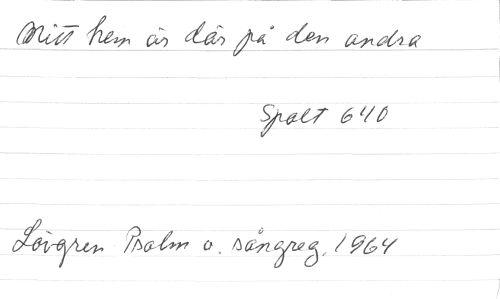 Mitt hem är där på den andra
Spalt 640
Lövgren Psalm o. sångreg. 1964